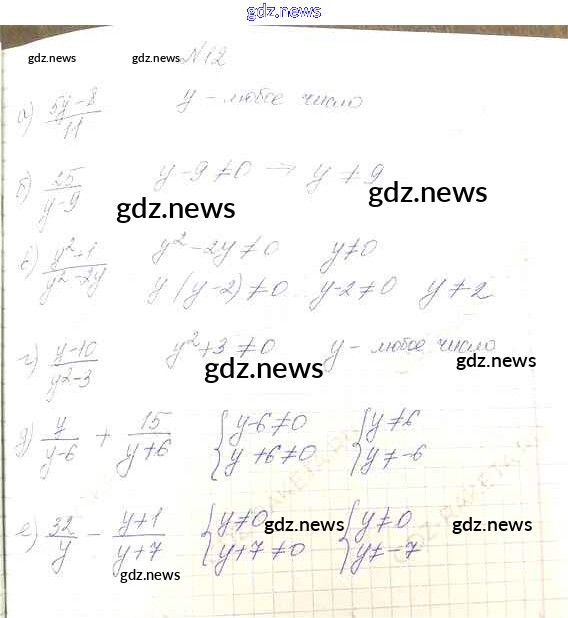 gdz.news
gdz.news gdz.news №12
а) (5y-8)/11 y - любое число
б) 25/(y-9) y-9≠0 → y≠9
gdz.news gdz.news
в) (y²+1)/(y²-2y) y²-2y≠0 y≠0
y(y-2)≠0 y-2≠0 y≠2
г) (y-10)/(y²-3) y²+3≠0 y - любое число
gdz.news gdz.news
д) y/(y-6) + 15/(y+6) { y-6≠0 { y≠6
y+6≠0 y≠-6
е) 32/y - (y+1)/(y+7) { y≠0 { y≠0
y+7≠0 y≠-7
gdz.news gdz.news
gdz.news